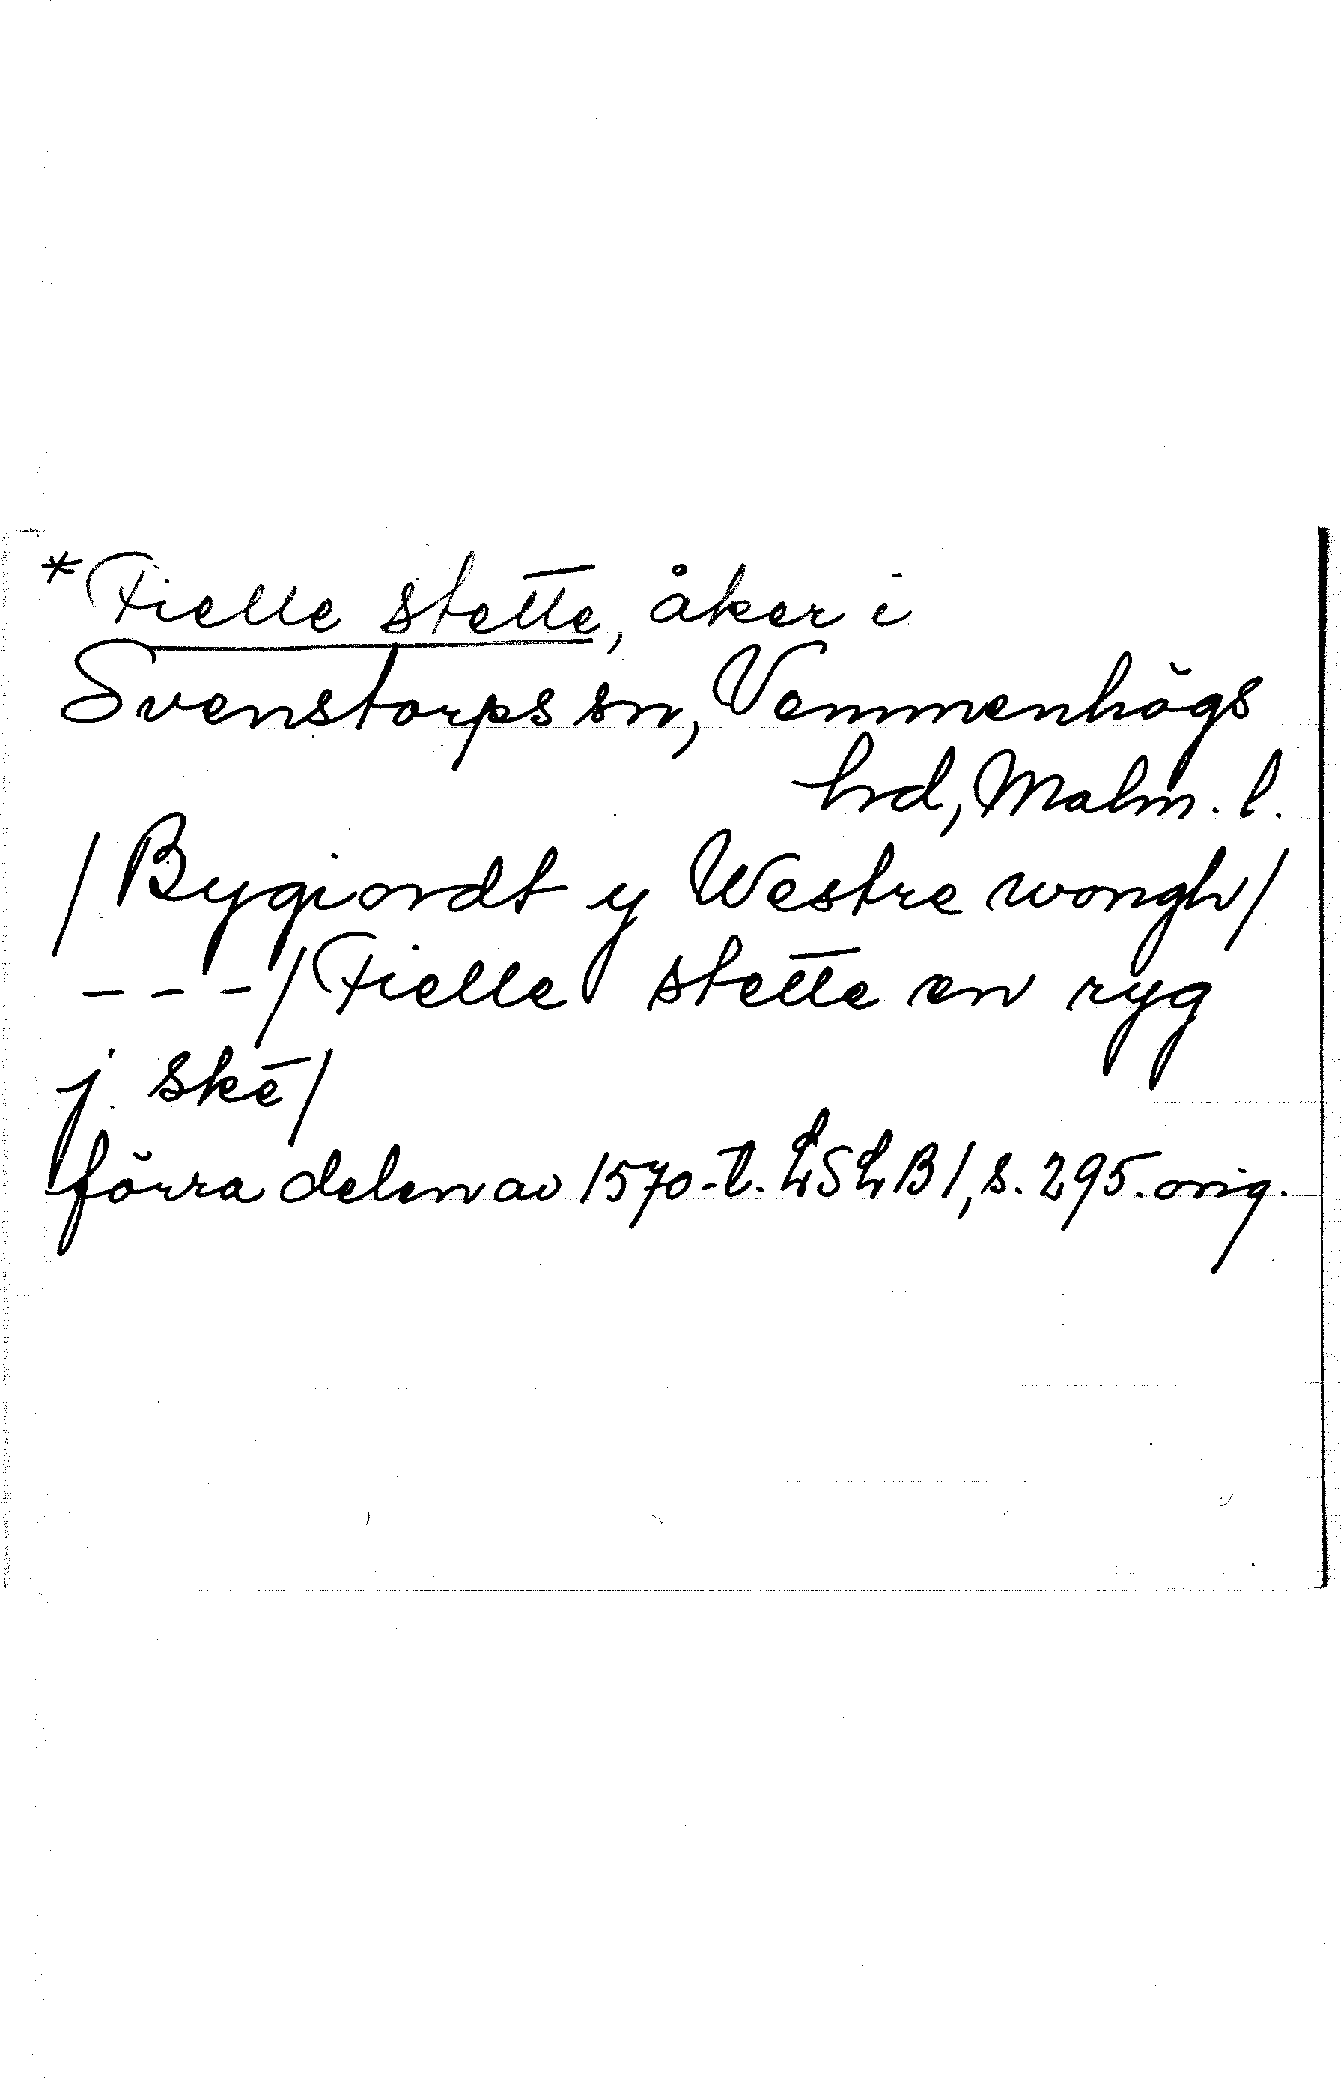 *Fielle stette, åker i
Svenstorps sn, Vemmenhögs
hrd, Malm. l.
/Bygiordt y Westre wongh/
---/Fielle stette en ryg
j skē/
förra delen av 1570-t. LSLB1, s. 295. orig.